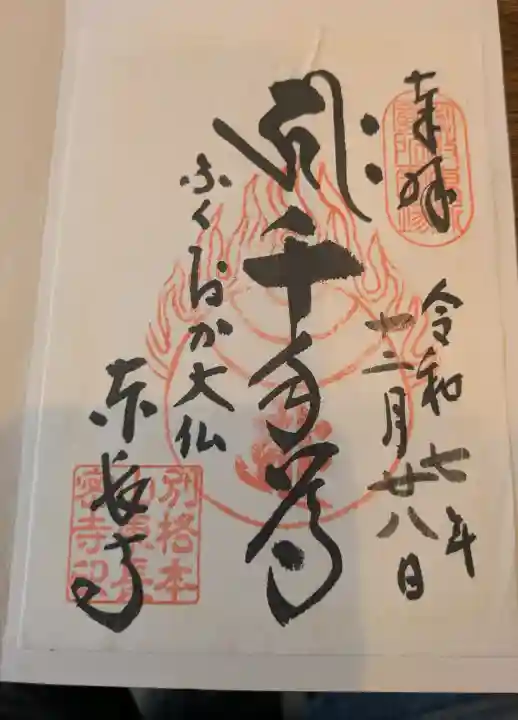 奉拝
令和七年
十二月廿八日
千手尊
ふくおか大仏
東長寺
別格本
山東長
密寺印